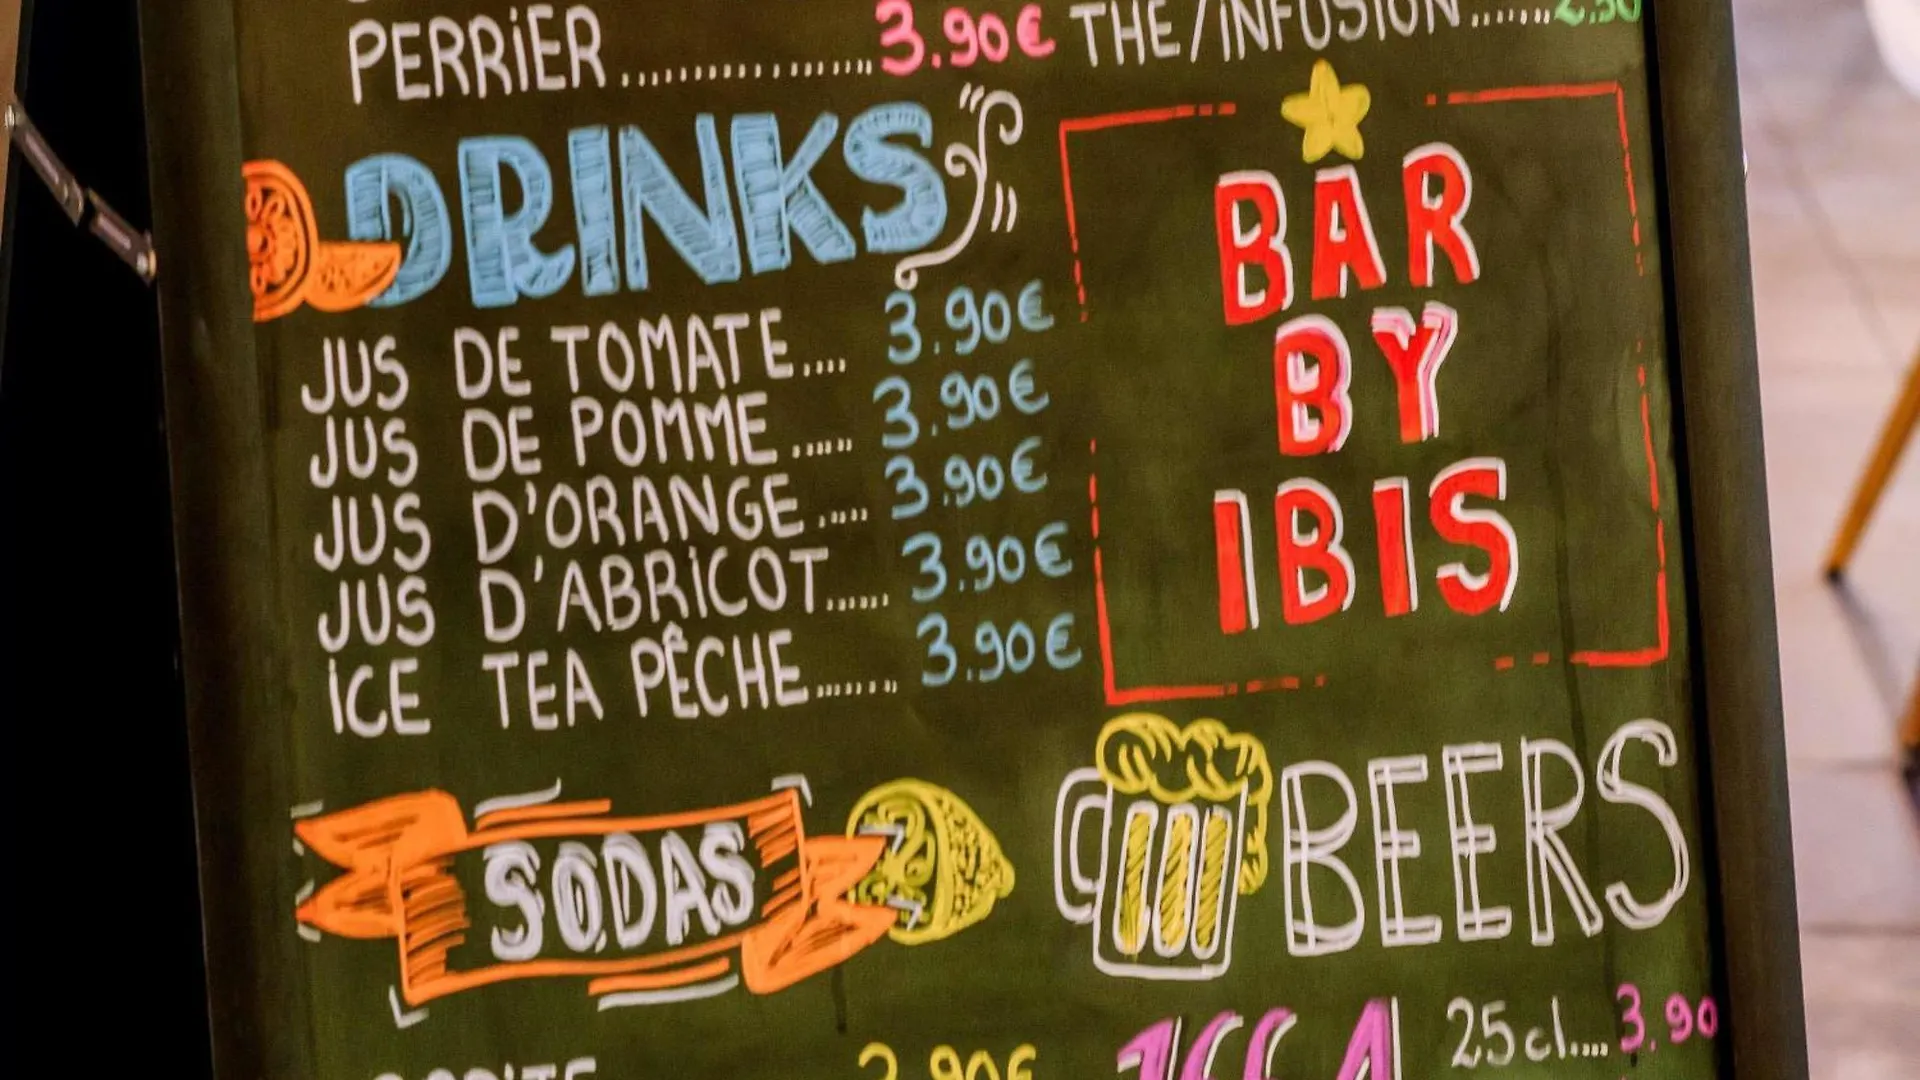 PERRiER..................3.90€
THE/iNFUSiON.......2.50
DRINKS
JUS DE TOMATE.... 3.90€
JUS DE POMME...... 3.90€
JUS D'ORANGE..... 3.90€
JUS D'ABRiCOT...... 3.90€
iCE TEA PÊCHE........ 3.90€
BAR
BY
IBIS
SODAS
BEERS
25cl.... 3.90